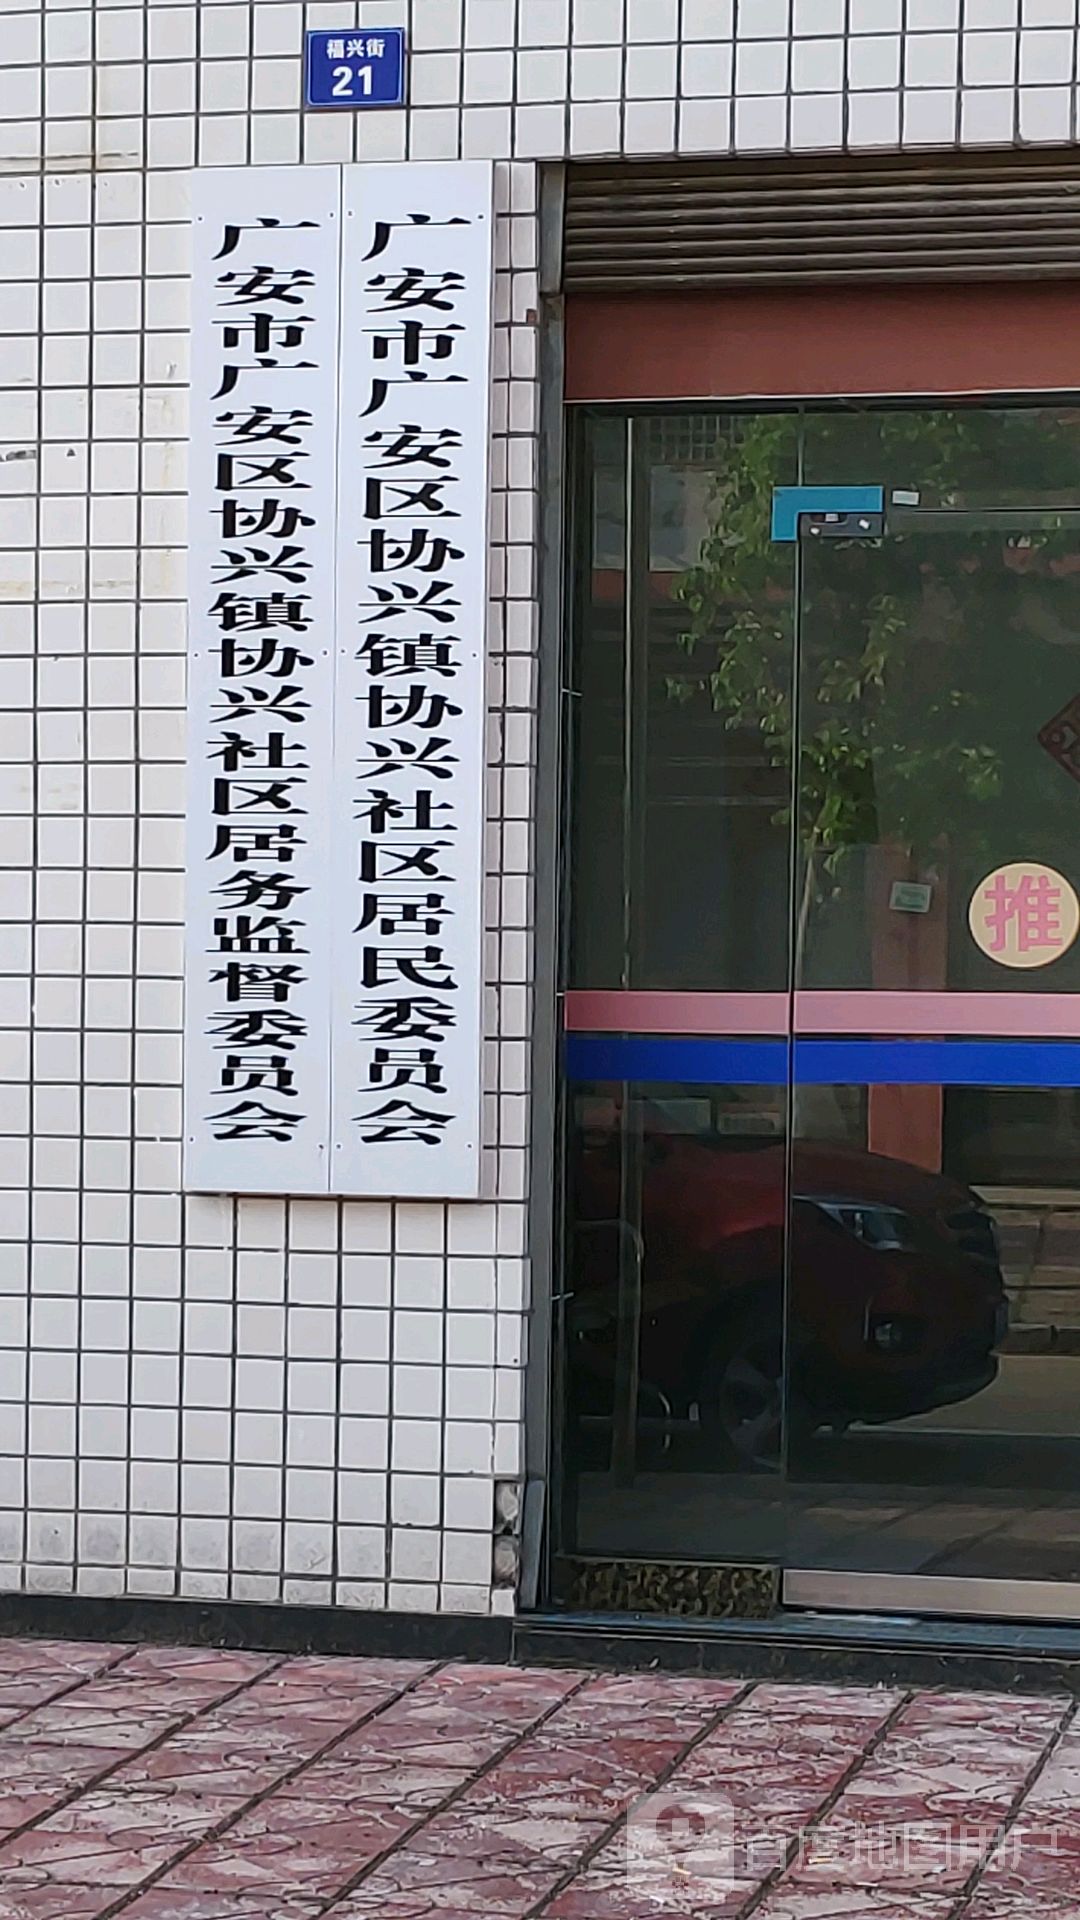 福兴街
21
广安市广安区协兴镇协兴社区居务监督委员会
广安市广安区协兴镇协兴社区居民委员会
推
百度地图用户